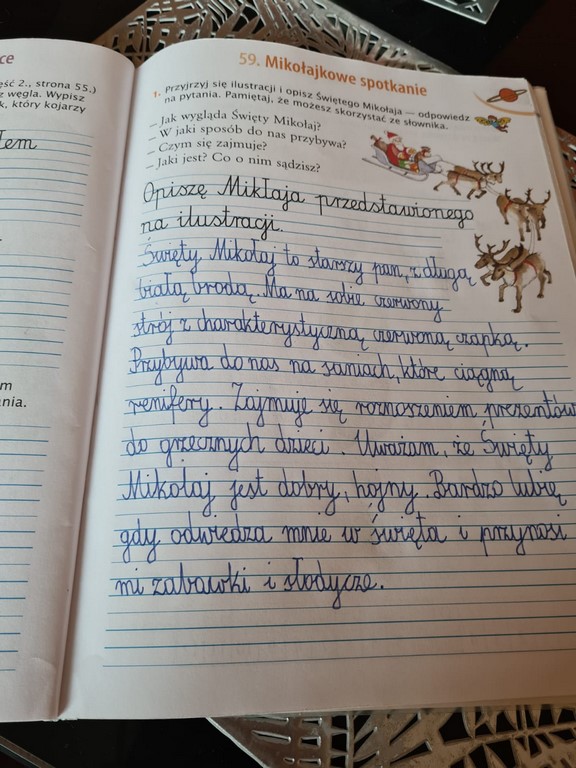 ce
59. Mikołajkowe spotkanie
ęść 2., strona 55.)
z węgla. Wypisz
k, który kojarzy
1. Przyjrzyj się ilustracji i opisz Świętego Mikołaja — odpowiedz
na pytania. Pamiętaj, że możesz skorzystać ze słownika.
– Jak wygląda Święty Mikołaj?
– W jaki sposób do nas przybywa?
– Czym się zajmuje?
– Jaki jest? Co o nim sądzisz?
łem
m
ania.
Opiszę Mikłaja przedstawionego
na ilustracji.
Święty Mikołaj to starszy pan, z długą
białą brodą. Ma na sobie czerwony
strój z charakterystyczną czerwoną czapką.
Przybywa do nas na saniach, które ciągną
renifery. Zajmuje się roznoszeniem prezentów
do grzecznych dzieci. Uważam, że Święty
Mikołaj jest dobry, hojny. Bardzo lubię
gdy odwiedza mnie w święta i przynosi
mi zabawki i słodycze.